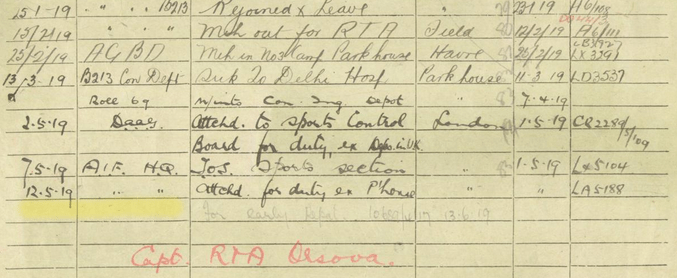 15-1-19 " " " B213 Rejoined x Leave " 23-1-19 A6/108
15/2/19 " " " Mch out for R T A Field 12/2/19 A6/111
25/2/19 A G B D Mch in No3 Camp Park house Havre 25/2/19 LX 3291
13-3-19 B213 Con Dept Sick To Delhi Hosp Park house 11-3-19 LD3537
Roll 69 Con. Depot " 7-4-19
2-5-19 Daag Attchd. to Sports Control London 1-5-19 CQ2289
Board for duty, ex Dep. in U.K.
7.5.19 A.I.F. H.Q. T.O.S. Sports section " 1-5-19 L&5104
12.5.19 " " Attchd. for duty ex P'house " " LA5188
For early Repat. 13.6.19
Capt. RTA Orsova.